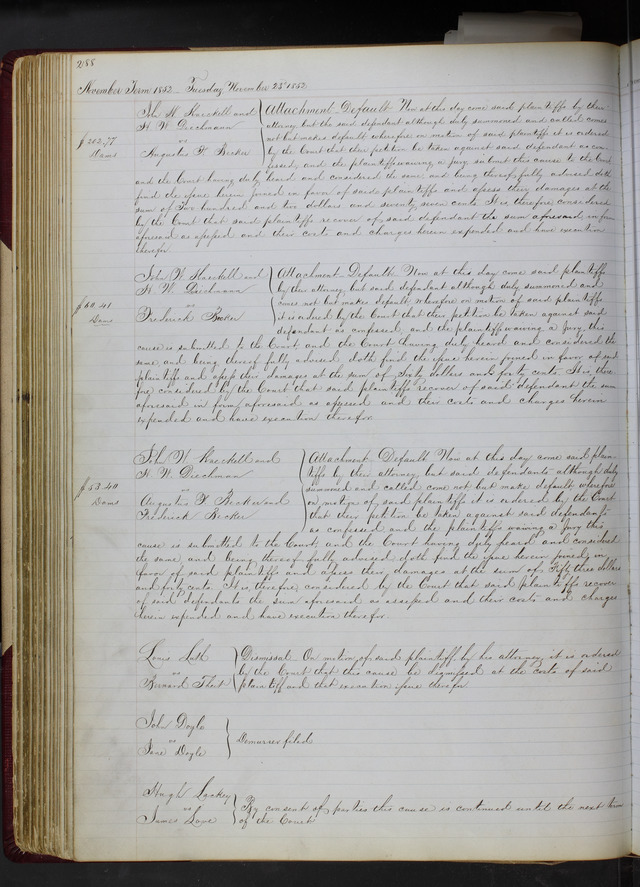 288
November Term 1852 – Tuesday November 23d 1852
John W Kreckell and
H. W. Diechmann
vs
Augustus F. Becker
$202.77
Dams
Attachment Default Now at this day come said plaintiffs by their
attorney, but the said defendant although duly summoned and called comes
not but makes default wherefore on motion of said plaintiff it is ordered
by the Court that their petition be taken against said defendant as con-
fessed, and the plaintiff waiving a jury submit this cause to the Court
and the Court having duly heard and considered the same and being thereof fully advised doth
find the issue herein joined in favor of said plaintiffs and assess their damages at the
sum of Two hundred and two dollars and seventy seven cents It is therefore considered
by the Court that said plaintiffs recover of said defendant the sum aforesaid in form
aforesaid as assessed and their costs and charges herein expended and have execution
therefor.
John W. Kreckell and
H. W. Diechmann
vs
Frederick Becker
$60.41
Dams
Attachment Default Now at this day come said plaintiffs
by their attorney, but said defendant although duly summoned and
comes not but makes default wherefore on motion of said plaintiffs
it is ordered by the Court that their petition be taken against said
defendant as confessed, and the plaintiff waiving a jury, this
cause is submitted to the Court and the Court having duly heard and considered the
same and being thereof fully advised doth find the issue herein joined in favor of said
plaintiffs and assess their damages at the sum of Sixty dollars and forty cents It is there
fore considered by the Court that said plaintiffs recover of said defendant the sum
aforesaid in form aforesaid as assessed and their costs and charges herein
expended and have execution therefor.
John W. Kreckell and
H. W. Diechman
vs
Augustus F Becker and
Frederick Becker
$53.40
Dams
Attachment Default Now at this day come said plain-
tiffs by their attorney but said defendants although duly
summoned and called come not but make default wherefore
on motion of said plaintiff it is ordered by the Court
that their petition be taken against said defendants
as confessed and the plaintiffs waiving a Jury this
cause is submitted to the Court, and the Court having duly heard and considered
the same and being thereof fully advised doth find the issue herein joined in
favor of said plaintiffs and assess their damages at the sum of Fifty three dollars
and forty cents. It is therefore considered by the Court that said plaintiffs recover
of said defendants the sum aforesaid as assessed and their costs and charges
herein expended and have execution therefor.
Louis Luth
vs
Bernard
Dismissal On motion of said plaintiff, by his attorney, it is ordered
by the Court that this cause be dismissed at the Costs of said
plaintiff and that execution issue therefor
John Doyle
vs
Jane Doyle
Demurrer filed
Hugh Lackey
vs
James Love
By consent of parties this cause is continued until the next term
of the Court